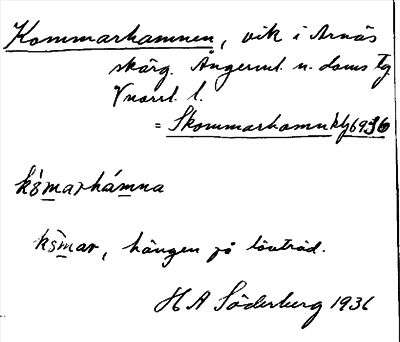 Kommarhamnen, vik i Arnäs
skärg. Ångerml. n. doms tg
V norrl. l.
= Skommarhamn kbl 6936
kòmarhámna
kòmar, hängen på lövträd.
H A Söderberg 1931